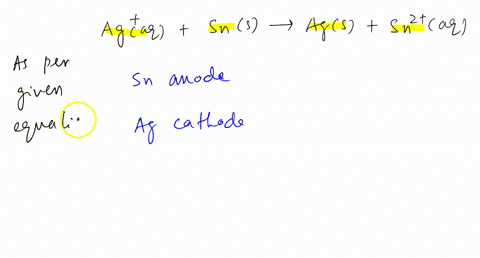 Ag⁺(aq) + Sn(s) → Ag(s) + Sn²⁺(aq)
As per
given
Sn anode
Ag cathode